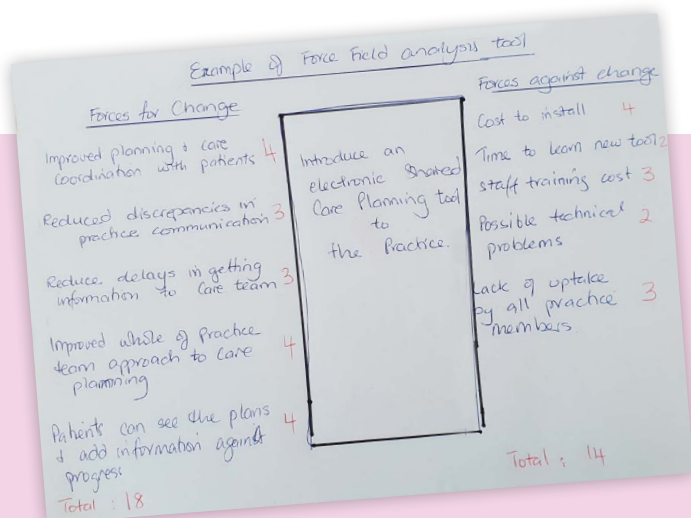 Example of Force Field analysis tool
Forces for Change
Improved planning + care 4
coordination with patients
Reduced discrepancies in 3
practice communication
Reduce delays in getting 3
information to care team
Improved whole of Practice 4
team approach to care
planning
Patients can see the plans 4
+ add information against
progress
Total : 18
Introduce an
electronic Shared
Care Planning tool
to
the Practice.
Forces against change
Cost to install 4
Time to learn new tool 2
staff training cost 3
Possible technical 2
problems
Lack of uptake 3
by all practice
members
Total : 14